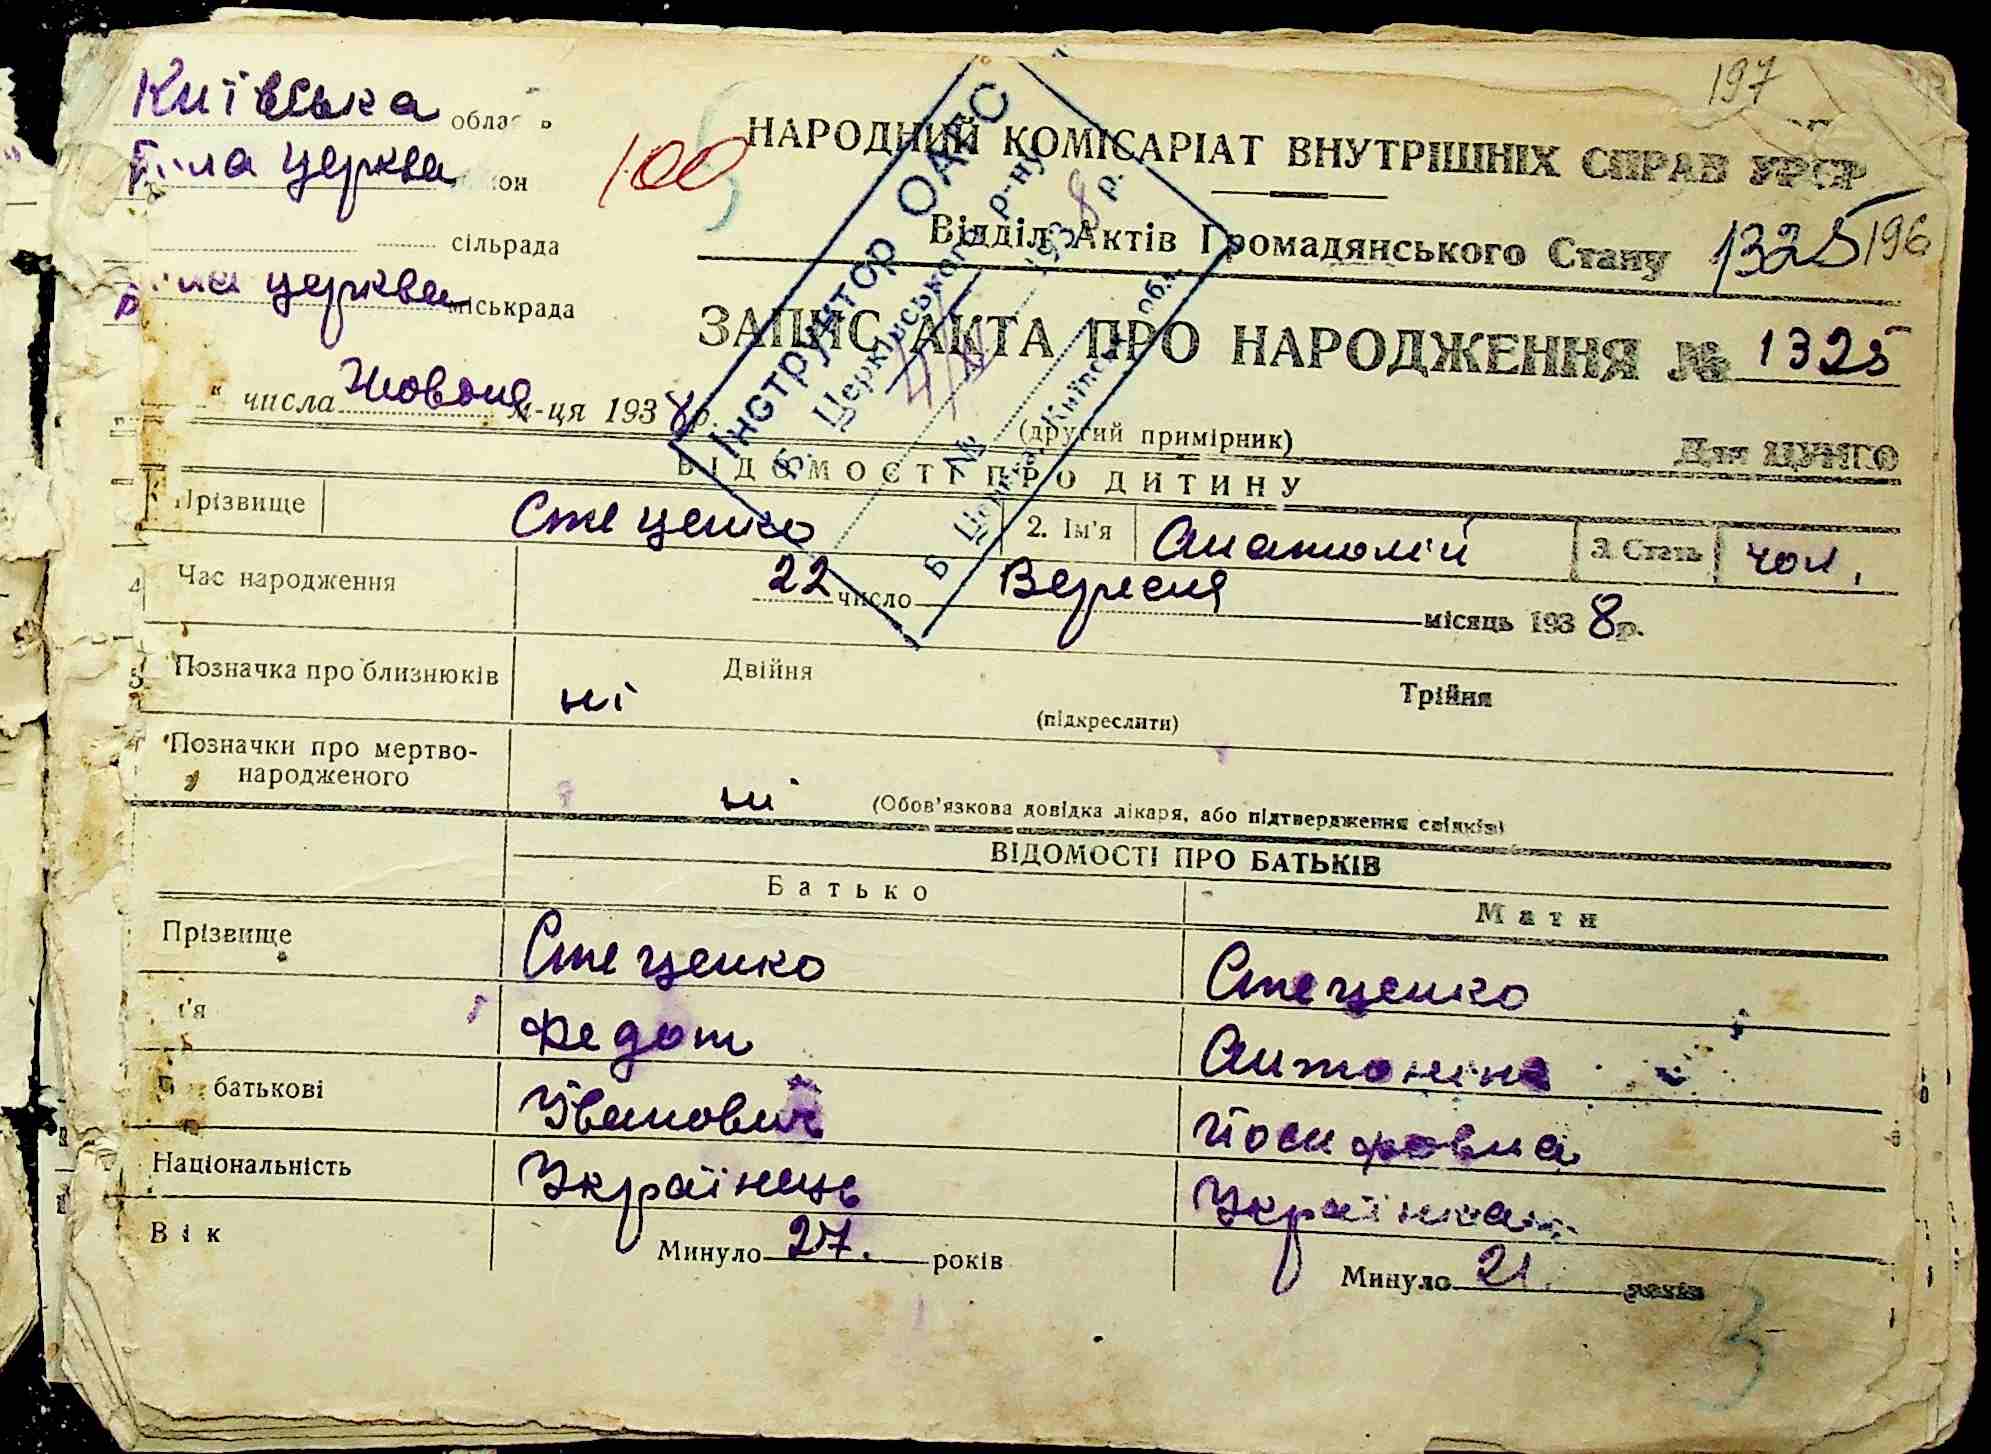 197
Київська область
Біла церква
100
НАРОДНИЙ КОМІСАРІАТ ВНУТРІШНІХ СПРАВ УРСР
сільрада
Відділ Актів Громадянського Стану 1325 196
Біла церква міськрада
ЗАПИС АКТА ПРО НАРОДЖЕННЯ № 1325
числа Жовтня м-ця 1938 р.
(другий примірник)
Для ЦУНГО
Інструктор ОАГС
Б. Церківського р-ну
№ 1938 р.
Б Церква, Київськ. обл.
ВІДОМОСТІ ПРО ДИТИНУ
Прізвище Стеценко 2. Ім'я Анатолій 3. Стать чол.
4 Час народження 22 число Вересня місяць 1938 р.
5 Позначка про близнюків ні Двійня Трійня
(підкреслити)
Позначки про мертво-
народженого ні (Обов'язкова довідка лікаря, або підтвердження свідків)
ВІДОМОСТІ ПРО БАТЬКІВ
Батько Мати
Прізвище Стеценко Стеценко
м'я Федот Антоніна
батькові Іванович Йосифовна
Національність Українець Українка
Вік Минуло 27. років Минуло 21. років
3